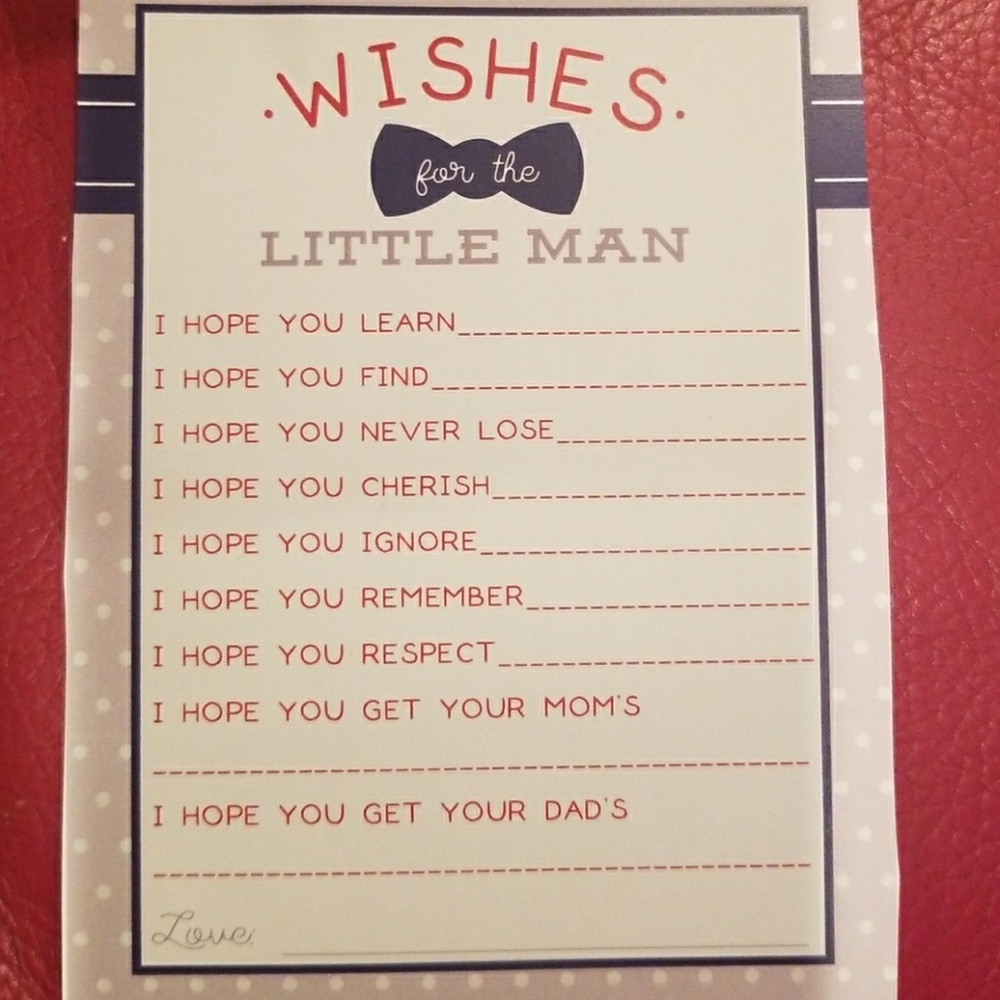 ·WISHES·
for the
LITTLE MAN
I HOPE YOU LEARN____________________
I HOPE YOU FIND______________________
I HOPE YOU NEVER LOSE_______________
I HOPE YOU CHERISH___________________
I HOPE YOU IGNORE____________________
I HOPE YOU REMEMBER_________________
I HOPE YOU RESPECT___________________
I HOPE YOU GET YOUR MOM'S
______________________________________
I HOPE YOU GET YOUR DAD'S
______________________________________
Love, ______________________________